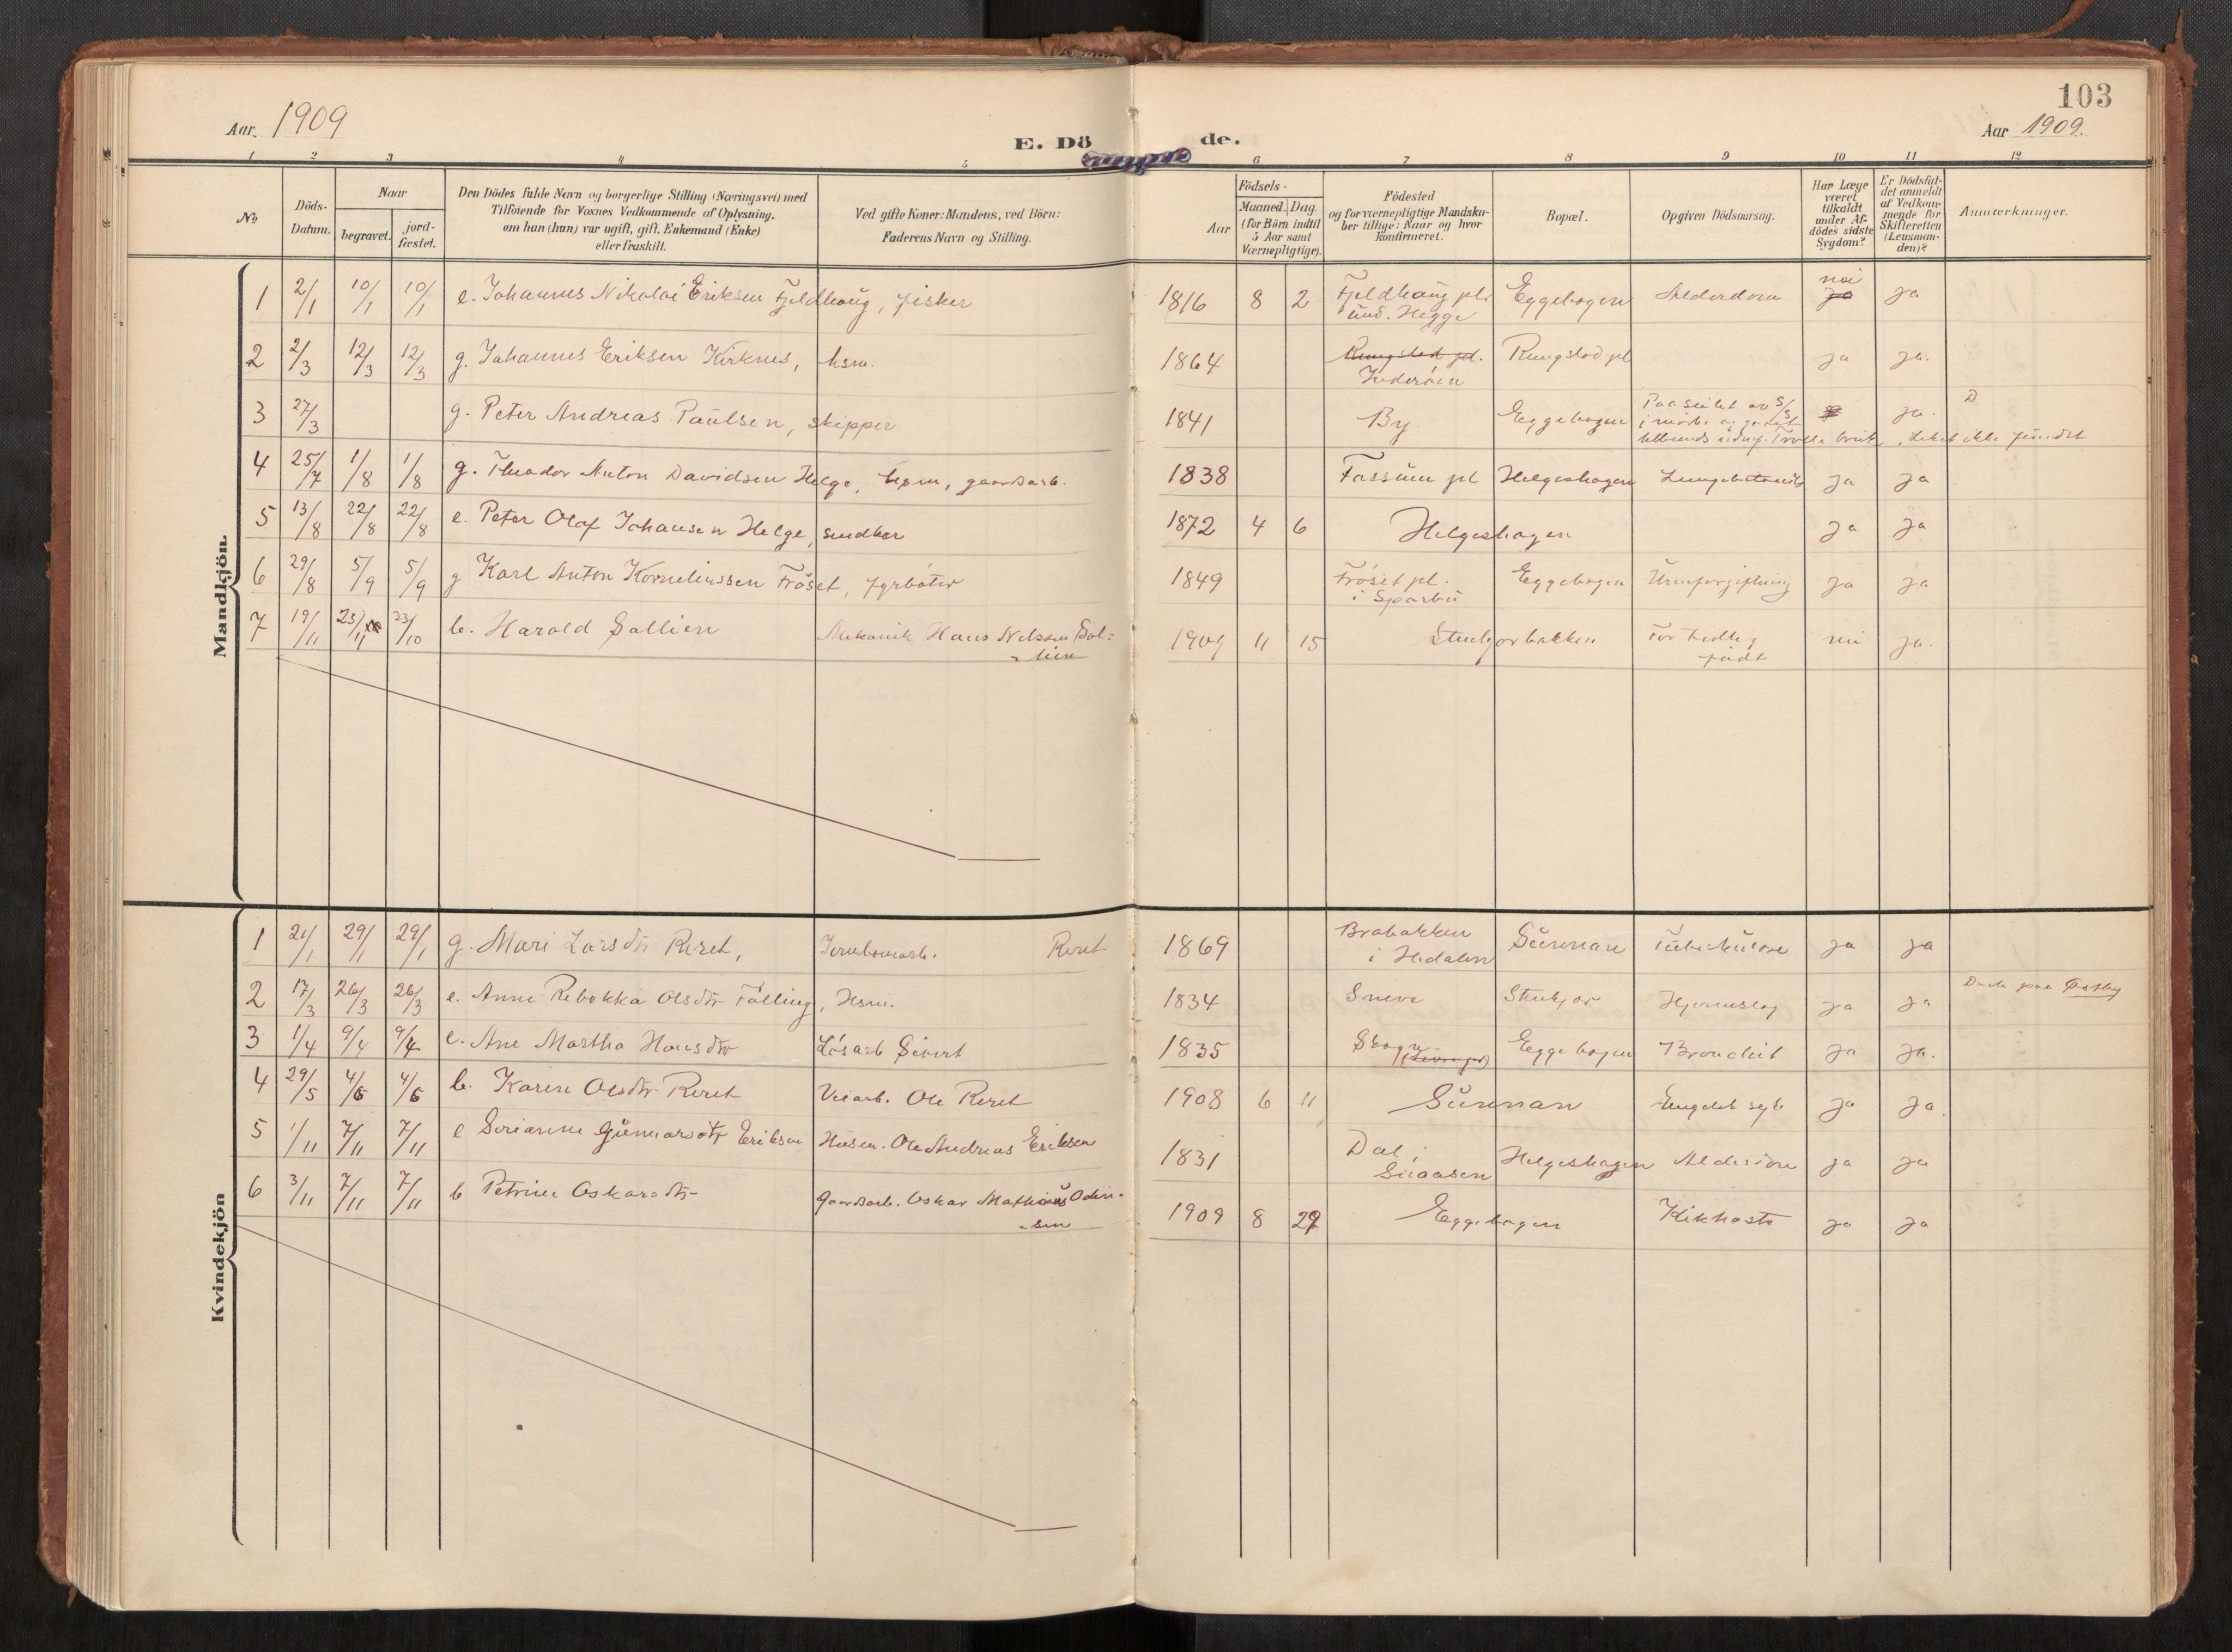 103
Aar. 1909
E. Dö de.
Aar 1909.
1 2 3 4 5 6 7 8 9 10 11 12
No
Döds-Datum.
Naar
begravet.
jord-fæstet.
Den Dödes fulde Navn og borgerlige Stilling (Næringsvei) med
Tilföiende for Voxnes Vedkommende af Oplysning,
om han (hun) var ugift, gift, Enkemand (Enke)
eller fraskilt.
Ved gifte Koner: Mandens, ved Börn:
Faderens Navn og Stilling.
Födsels-
Aar
Maaned.
Dag.
(for Börn indtil
5 Aar samt
Værnepligtige).
Födested
og for værnepligtige Mandska-
ber tillige: Naar og hvor
konfirmeret.
Bopæl.
Opgiven Dödsaarsag.
Har Læge
været
tilkaldt
under Af-
dödes sidste
Sygdom?
Er Dödsfal-
det anmeldt
af Vedkom-
mende for
Skifteretten
(Lensman-
den)?
Anmerkninger.
Mandkjön.
1 2/1 10/1 10/1 e. Johannes Nikolai Eriksen Fjeldhaug, fisker 1816 8 2 Fjeldhaug pl. und. Hegge Eggebogen Alderdom nei ja ja
2 2/3 12/3 12/3 g. Johannes Eriksen Kirknes, hsm. 1864 Rungstad pl. Inderöen Rungstad pl ja ja.
3 27/3 g. Peter Andreas Paulsen, skipper 1841 By Eggebogen ja. D
Liket ikke fundet
4 25/7 1/8 1/8 g. Theodor Anton Davidsen Helge, gaardsarb. 1838 Fossum pl Helgeshagen Lungebetændelse ja ja
5 13/8 22/8 22/8 e. Peter Olaf Johansen Helge, snedker 1872 4 6 Helgeshagen ja ja
6 29/8 5/9 5/9 g Karl Anton Kornelius­sen Fröset, fyrböter 1849 Fröset pl. i Sparbu Eggebogen Urinforgiftning ja ja
7 19/11 23/11 23/10 b. Harald Sallien Mekanik Hans Nelssen Sal-
lien 1909 11 15 Stenkjerbakken For tidlig
födt nei ja.
Kvindekjön
1 21/1 29/1 29/1 g. Mari Larsdtr Reret, Jernbanearb. Reret 1869 Brabakken i Hedalen Sunnan Tuberkulose ja ja
2 17/3 26/3 26/3 e. Anne Rebekka Olsdtr Fölling, Hsm. 1834 Sneve Stenkjer Hjerneslag ja ja Döde paa Østby
3 1/4 9/4 9/4 e. Ane Martha Hansdtr Lösarb Sivert 1835 Skogn (Levanger) Eggebogen Bronchit ja ja.
4 29/5 4/6 4/6 b. Karen Olsdtr Reret Veiarb. Ole Reret 1908 6 11 Sunnan Engelsk syke ja ja.
5 1/11 7/11 7/11 e Serianna Gunnarsdtr Eriksen Husm. Ole Andreas Eriksen 1831 Dal i Snaasen Helgeshagen Alderdom ja ja
6 3/11 7/11 7/11 b Petrine Oskarsdtr Gaardsarb. Oskar Mathias Odin-
sen 1909 8 29 Eggebogen Kikhoste ja ja